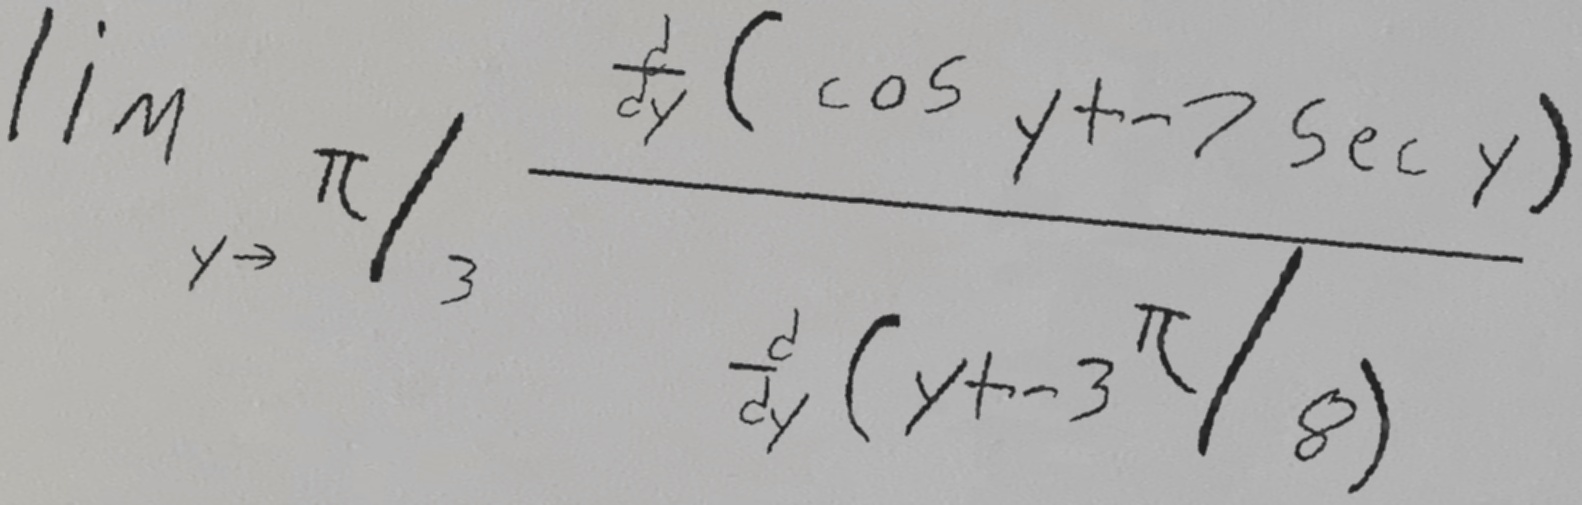 lim_{y→π/3} \frac{\frac{d}{dy}(cos y+-7 sec y)}{\frac{d}{dy}(y+-3π/8)}